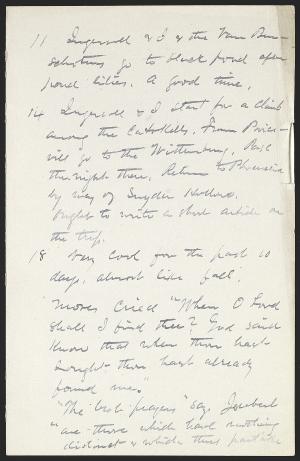 11 Ingersoll & I & the Van Ben-
schotens go to black pond after
pond lilies. A good time.
14 Ingersoll & I start for a climb
among the Catskills. From Pine-
ville go to the Wittenberg. Pass
the night there. Return to Phoenicia
by way of Snyder Hollow.
Ought to write a short article on
the trip.
18 Very cold for the past 10
days, almost like fall.
Moses cried "When O Lord
shall I find thee? God said
Know that when thou hast
sought thou hast already
found me."
"The best prayers" says Joubert
"are those which have nothing
distinct & which thus partake